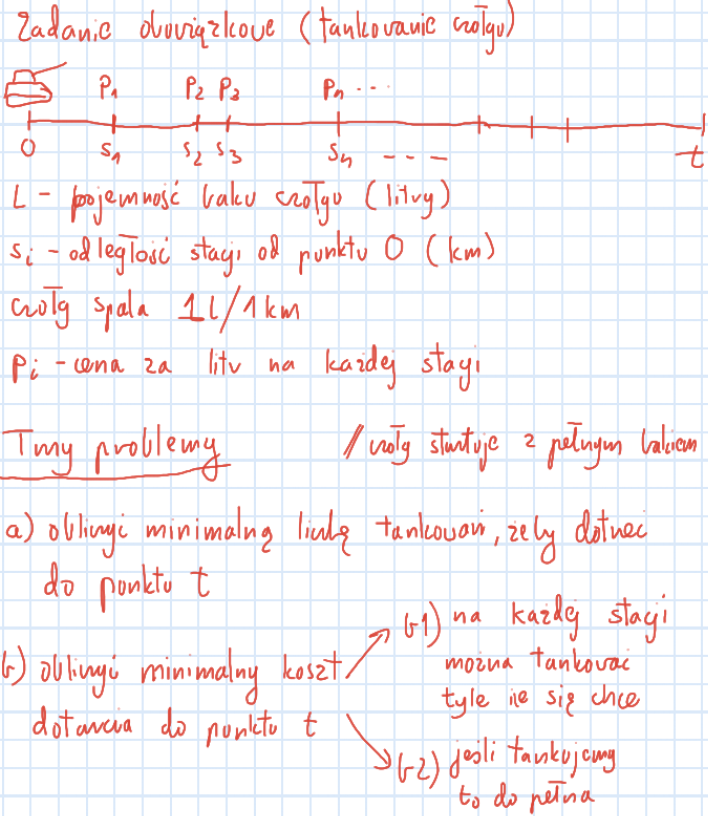 Zadanie obowiązkowe (tankowanie czołgu)
P₁ P₂ P₃ Pₙ ...
0 s₁ s₂ s₃ sₙ - - - t
L - pojemność baku czołgu (litry)
sᵢ - odległość stacji od punktu 0 (km)
czołg spala 1l/1km
Pᵢ - cena za litr na każdej stacji
Trzy problemy / czołg startuje z pełnym bakiem
a) obliczyć minimalną liczbę tankowań, żeby dotrzeć
do punktu t
b) obliczyć minimalny koszt
dotarcia do punktu t
b1) na każdej stacji
można tankować
tyle ile się chce
b2) jeśli tankujemy
to do pełna